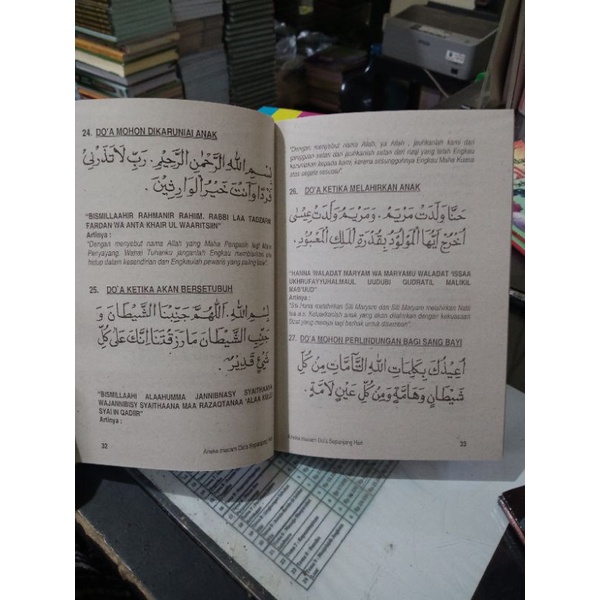 24. DO'A MOHON DIKARUNIAI ANAK
بِسْمِ اللهِ الرَّحْمٰنِ الرَّحِيْمِ. رَبِّ لَا تَذَرْنِيْ
فَرْدًا وَاَنْتَ خَيْرُ الْوَارِثِيْنَ.
"BISMILLAAHIR RAHMANIR RAHIM. RABBI LAA TADZARNII
FARDAN WA ANTA KHAIR UL WAARITSIIN"
Artinya :
"Dengan menyebut nama Allah yang Maha Pengasih lagi Maha
Penyayang. Wahai Tuhanku janganlah Engkau membiarkan aku
hidup dalam kesendirian dan Engkaulah pewaris yang paling baik".
25. DO'A KETIKA AKAN BERSETUBUH
بِسْمِ اللهِ. اَللّٰهُمَّ جَنِّبْنَا الشَّيْطَانَ وَ
جَنِّبِ الشَّيْطَانَ مَا رَزَقْتَنَا اِنَّكَ عَلٰى كُلِّ
شَيْءٍ قَدِيْرٌ.
"BISMILLAAHI ALAAHUMMA JANNIBNASY SYAITHAANA
WAJANNIBISY SYAITHAANA MAA RAZAQTANAA 'ALAA KULLI
SYAI IN QADIIR"
Artinya :
32
Aneka macam Do'a Sepanjang Hari
"Dengan menyebut nama Allah, ya Allah , jauhkanlah kami dari
gangguan setan dan jauhkanlah setan dari rizqi yang telah Engkau
karuniakan kepada kami, karena sesungguhnya Engkau Maha Kuasa
atas segala sesuatu".
26. DO'A KETIKA MELAHIRKAN ANAK
حَنَّا وَلَدَتْ مَرْيَمَ. وَمَرْيَمُ وَلَدَتْ عِيْسٰى
اُخْرُجْ اَيُّهَا الْمَوْلُوْدُ بِقُدْرَةِ الْمَلِكِ الْمَعْبُوْدِ.
"HANNA WALADAT MARYAM WA MARYAMU WALADAT 'ISSAA
UKHRUFAYYUHALMAUL UUDUBI QUDRATIL MALIKIL
MA'UUD"
Artinya :
"Siti Hana melahirkan Siti Maryam dan Siti Maryam melahirkan Nabi
Isa a.s. Keluarlah anak yang akan dilahirkan dengan kekuasaan
Dzat yang merajai lagi berhak untuk disembah".
27. DO'A MOHON PERLINDUNGAN BAGI SANG BAYI
اُعِيْذُكَ بِكَلِمَاتِ اللهِ التَّآمَّاتِ مِنْ كُلِّ
شَيْطَانٍ وَهَآمَّةٍ وَمِنْ كُلِّ عَيْنٍ لَآمَّةٍ.
Aneka macam Do'a Sepanjang Hari
33